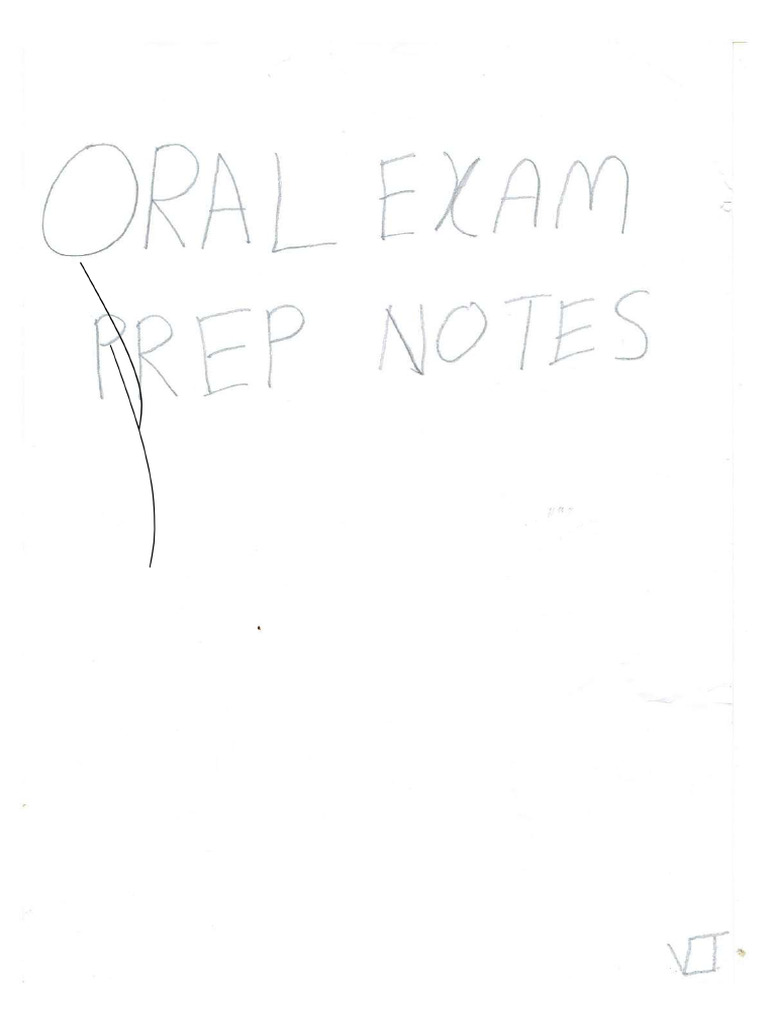 ORAL EXAM
PREP NOTES